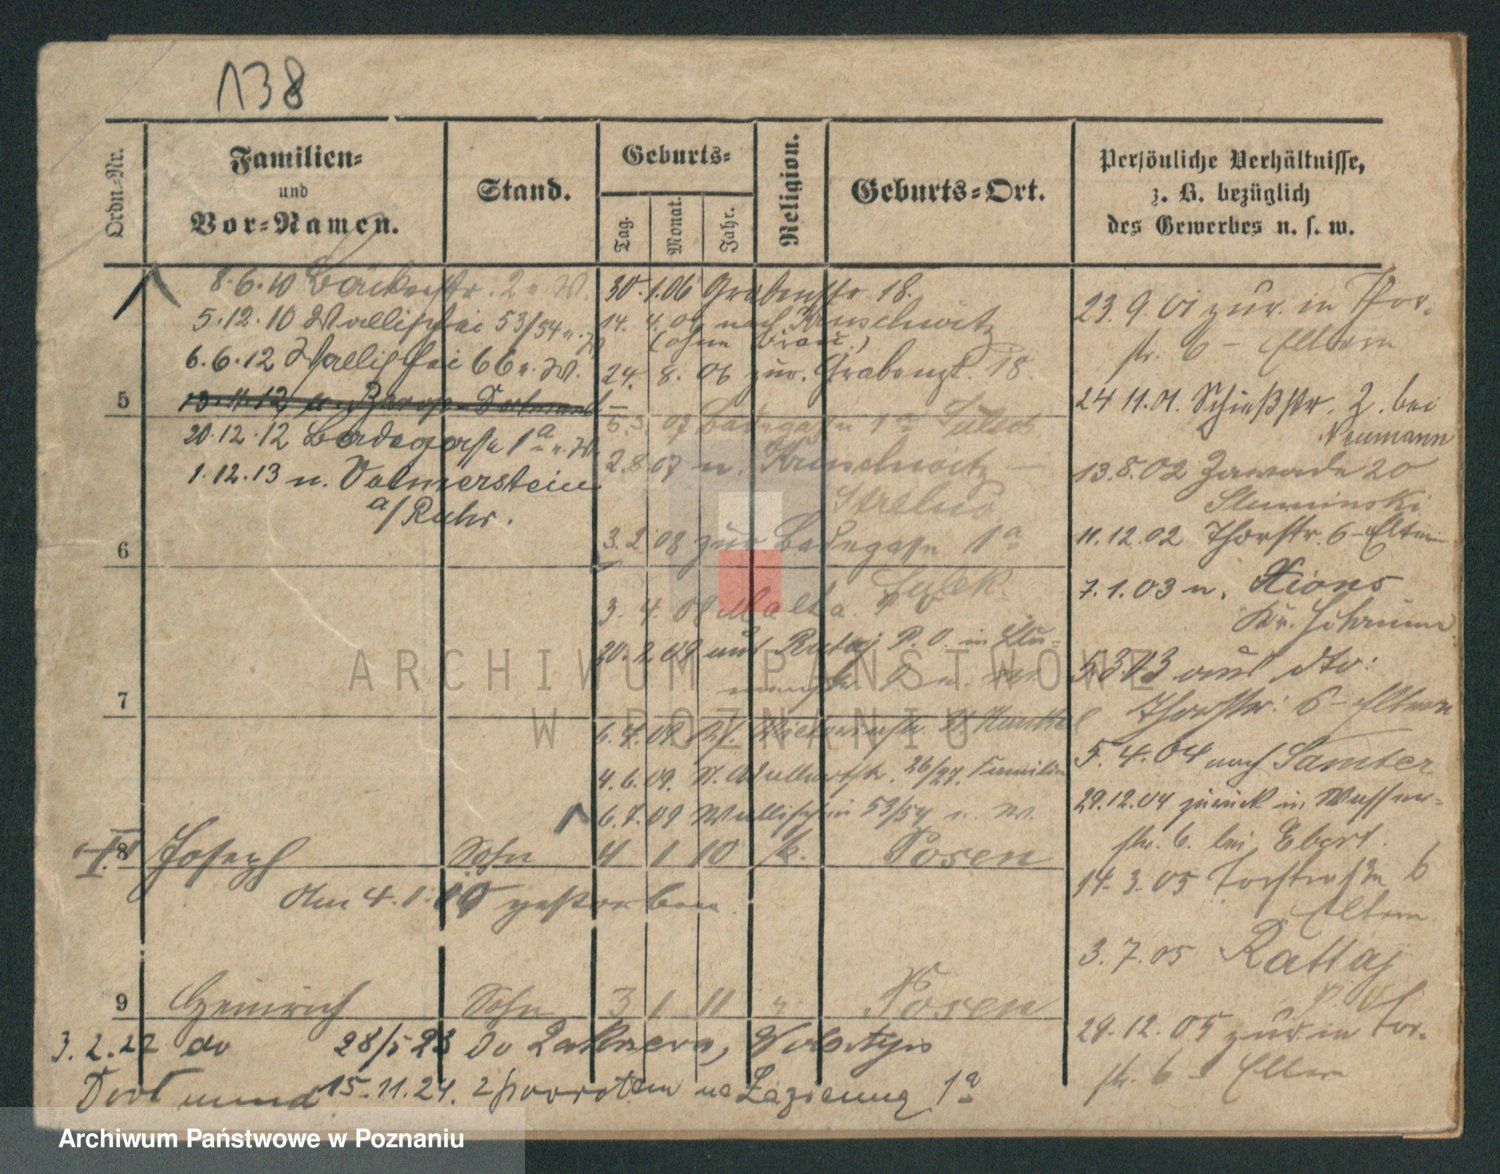 138
Ordn.-Nr.
Familien-
und
Vor-Namen.
Stand.
Geburts-
Tag.
Monat.
Jahr.
Religion.
Geburts-Ort.
Persönliche Verhältnisse,
z. B. bezüglich
des Gewerbes u. s. w.
8.6.10 Bäckerstr. 2 u. W.
5.12.10 Wallischei 53/54 u. W.
6.6.12 Wallischei 66 u. W.
13.11.12 n.
20.12.12 Badegasse 1a u. W.
1.12.13 n. Volmerstein
a/Ruhr.
5
6
7
30.1.06 Grabenstr 18.
14. 4. 06 nach Kruschwitz
(ohne Frau.)
24. 8. 06 zur. Grabenst. 18.
5.3.07 Badegasse 1a
2.8.07 n. Kruschwitz
Strelno
3.2.08 zur Badegasse 1a
3. 4. 09 Malta
20.2.09 aus Rataj P. O. in
4.6.09. 26/27. Familie
6.7.09 Wallischei 53/54 u. W.
8 Joseph Sohn 4 1 10 k. Posen
Am 4.1.10 gestorben.
9 Heinrich Sohn 3 1 11 " Posen
3.2.22 do 28/5 23 do Wolsztyn
Dortmund 15.11.24. z powrotem na Łazienną 1a
23.9.01 zur. in Thor-
str. 6 - Eltern
24.11.01. Schießstr. 2. bei
Neumann
13.8.02 Zawade 20
Sluminski
11.12.02 Thorstr. 6 - Eltern
7.1.03 n. Xions
Kr. Schrimm
5.3.03 aus dto:
Thorstr. 6 - Eltern
5.4.04 nach Samter
29.12.04 zurück in Wasser-
str. 6. bei Ebert.
14.3.05 Torstraße 6
Eltern
3.7.05 Rattaj
29.12.05 zur. in Tor-
str. 6 - Eltern
ARCHIWUM PAŃSTWOWE
W POZNANIU
Archiwum Państwowe w Poznaniu